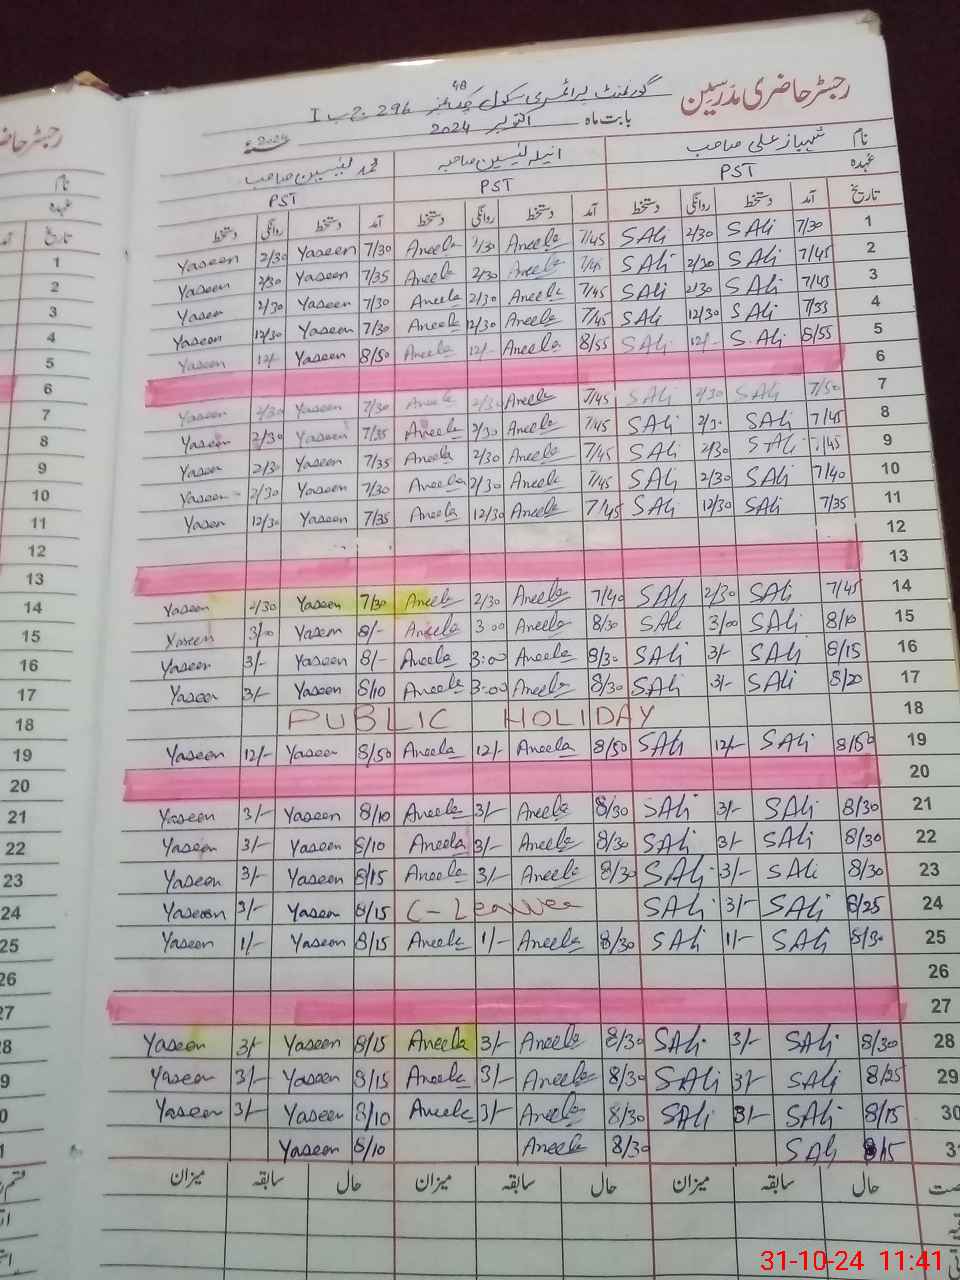 رجسٹر حاضری مدرسین
گورنمنٹ پرائمری سکول 296 ج ب I
بابت ماہ اکتوبر 2024
نام شہباز علی صاحب انیلہ یٰسین صاحبہ محمد یٰسین صاحب
عہدہ PST PST PST
تاریخ آمد دستخط روانگی دستخط آمد دستخط روانگی دستخط آمد دستخط روانگی دستخط
Yaseen 2/30 Yaseen 7/30 Aneela 2/30 Aneela 7/45 SAli 2/30 SAli 7/30 1
Yaseen 2/30 Yaseen 7/35 Aneela 2/30 Aneela 7/45 SAli 2/30 SAli 7/45 2
Yaseen 2/30 Yaseen 7/30 Aneela 2/30 Aneela 7/45 SAli 2/30 SAli 7/45 3
Yaseen 12/30 Yaseen 7/30 Aneela 12/30 Aneela 7/45 SAli 12/30 SAli 7/55 4
Yaseen 12/- Yaseen 8/50 Aneela 12/- Aneela 8/55 SAli 12/- S.Ali 8/55 5
6
Yaseen 2/30 Yaseen 7/30 Aneela 2/30 Aneela 7/45 SAli 2/30 SAli 7/50 7
Yaseen 2/30 Yaseen 7/35 Aneela 2/30 Aneela 7/45 SAli 2/30 SAli 7/45 8
Yaseen 2/30 Yaseen 7/35 Aneela 2/30 Aneela 7/45 SAli 2/30 SAli 7/45 9
Yaseen 2/30 Yaseen 7/30 Aneela 2/30 Aneela 7/45 SAli 2/30 SAli 7/40 10
Yasen 12/30 Yaseen 7/35 Aneela 12/30 Aneela 7/45 SAli 12/30 SAli 7/35 11
12
13
Yaseen 2/30 Yaseen 7/30 Aneela 2/30 Aneela 7/40 SAli 2/30 SAli 7/45 14
Yaseen 3/00 Yasem 8/- Aneela 3:00 Aneela 8/30 SAli 3/00 SAli 8/10 15
Yaseen 3/- Yaseen 8/- Aneela 3:00 Aneela 8/30 SAli 3/- SAli 8/15 16
Yaseen 3/- Yaseen 8/10 Aneela 3:00 Aneela 8/30 SAli 3/- SAli 8/20 17
PUBLIC HOLIDAY 18
Yaseen 12/- Yaseen 8/50 Aneela 12/- Aneela 8/50 SAli 12/- SAli 8/50 19
20
Yaseen 3/- Yaseen 8/10 Aneela 3/- Aneela 8/30 SAli 3/- SAli 8/30 21
Yaseen 3/- Yaseen 8/10 Aneela 3/- Aneela 8/30 SAli 3/- SAli 8/30 22
Yaseen 3/- Yaseen 8/15 Aneela 3/- Aneela 8/30 SAli 3/- SAli 8/30 23
Yaseen 3/- Yaseen 8/15 C-Leavee SAli 3/- SAli 8/25 24
Yaseen 1/- Yaseen 8/15 Aneela 1/- Aneela 8/30 SAli 1/- SAli 8/30 25
26
27
Yaseen 3/- Yaseen 8/15 Aneela 3/- Aneela 8/30 SAli 3/- SAli 8/30 28
Yaseen 3/- Yaseen 8/15 Aneela 3/- Aneela 8/30 SAli 3/- SAli 8/25 29
Yaseen 3/- Yaseen 8/10 Aneela 3/- Aneela 8/30 SAli 3/- SAli 8/15 30
Yaseen 8/10 Aneela 8/30 SAli 8/15 31
حال سابقہ میزان حال سابقہ میزان حال سابقہ میزان
نام
عہدہ
تاریخ
1
2
3
4
5
6
7
8
9
10
11
12
13
14
15
16
17
18
19
20
21
22
23
24
25
26
27
31-10-24 11:41